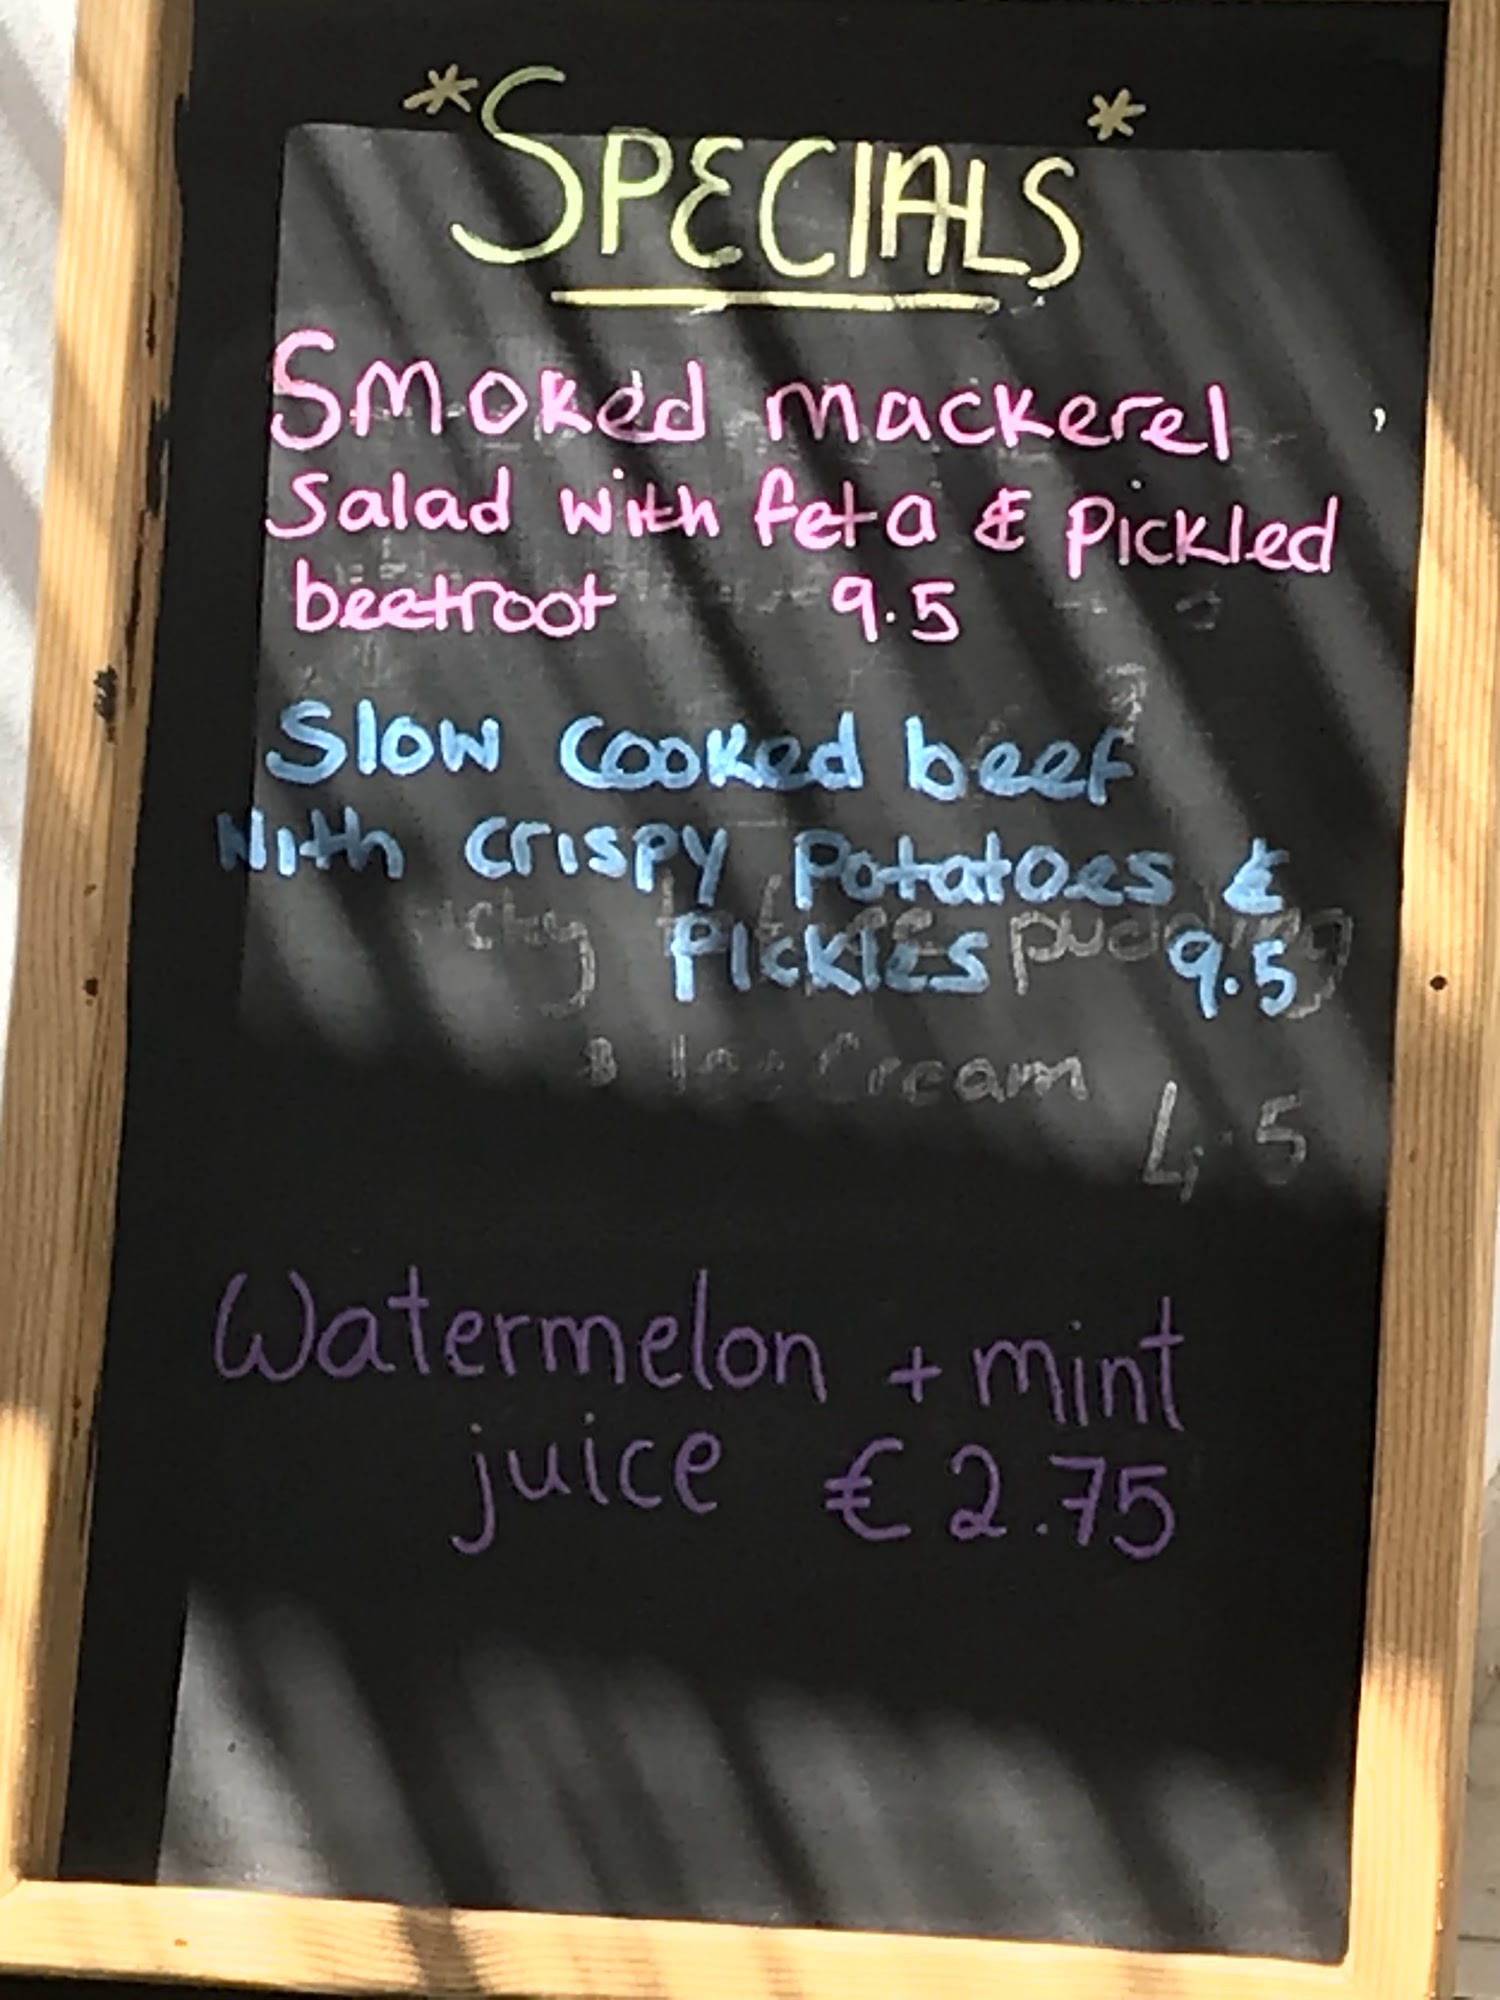 *SPECIALS*
Smoked mackerel
Salad with feta & Pickled
beetroot 9.5
Slow Cooked beef
With crispy Potatoes &
Pickles 9.5
pudding
& Ice Cream
4.5
Watermelon + mint
juice €2.75